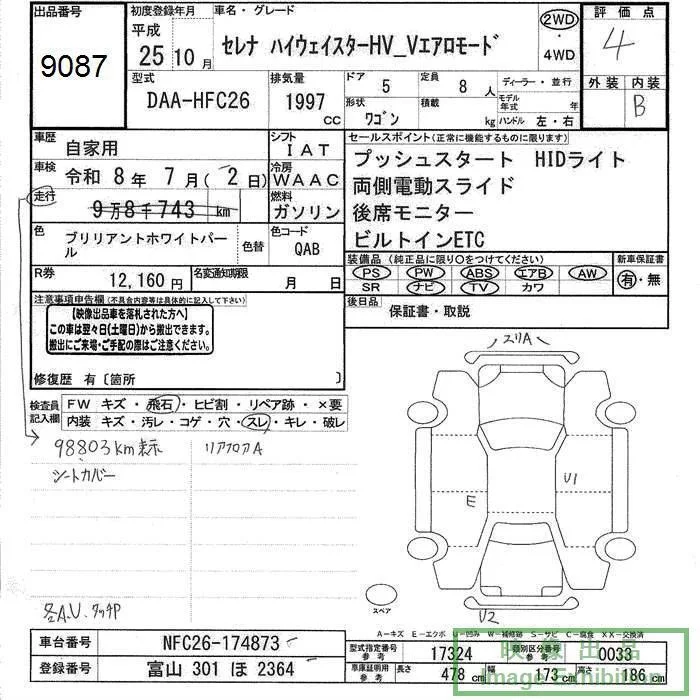 出品番号
9087
初度登録年月
平成
25 10 月
車名・グレード
セレナ ハイウェイスターHV_Vエアロモード
2WD
・
4WD
評価点
4
外装 内装
B
型式
DAA-HFC26
排気量
1997
CC
ドア
5
形状
ワゴン
定員
8 人
積載
kg
ディーラー・並行
モデル年式 年
ハンドル 左・右
車歴
自家用
シフト
IAT
車検
令和 8年 7月( 2日)
冷房
WAAC
走行
9万8千743 km
燃料
ガソリン
色
ブリリアントホワイトパール
色替
色コード
QAB
R券
12,160 円
名変通知期限
月 日
セールスポイント(正常に機能するものに限ります)
プッシュスタート HIDライト
両側電動スライド
後席モニター
ビルトインETC
装備品(純正品に限り○をつけてください)
PS PW ABS エアB AW
SR ナビ TV カワ
新車保証書
有・無
後日品
保証書・取説
注意事項申告欄(不具合内容等は具体的に記入して下さい)
【映像出品車を落札された方へ】
この車は翌々日(土曜日)から搬出できます。
搬出にご来場・ご手配の際はご注意ください。
修復歴 有〔箇所 〕
検査員記入欄
FW キズ・飛石・ヒビ割・リペア跡・×要
内装 キズ・汚レ・コゲ・穴・スレ・キレ・破レ
98803km表示
リアフロアA
シートカバー
各A.U.タッチP
スリA
E
U1
U2
スペア
A-キズ E-エクボ U-凹み W-補修跡 S-サビ C-腐食 XX-交換済
車台番号
NFC26-174873
登録番号
富山 301 ほ 2364
型式指定番号
参考
17324
類別区分番号
参考
0033
車庫証明用
参考
長さ
478 cm
幅
173 cm
高さ
186 cm
映像出品
Image Exhibition